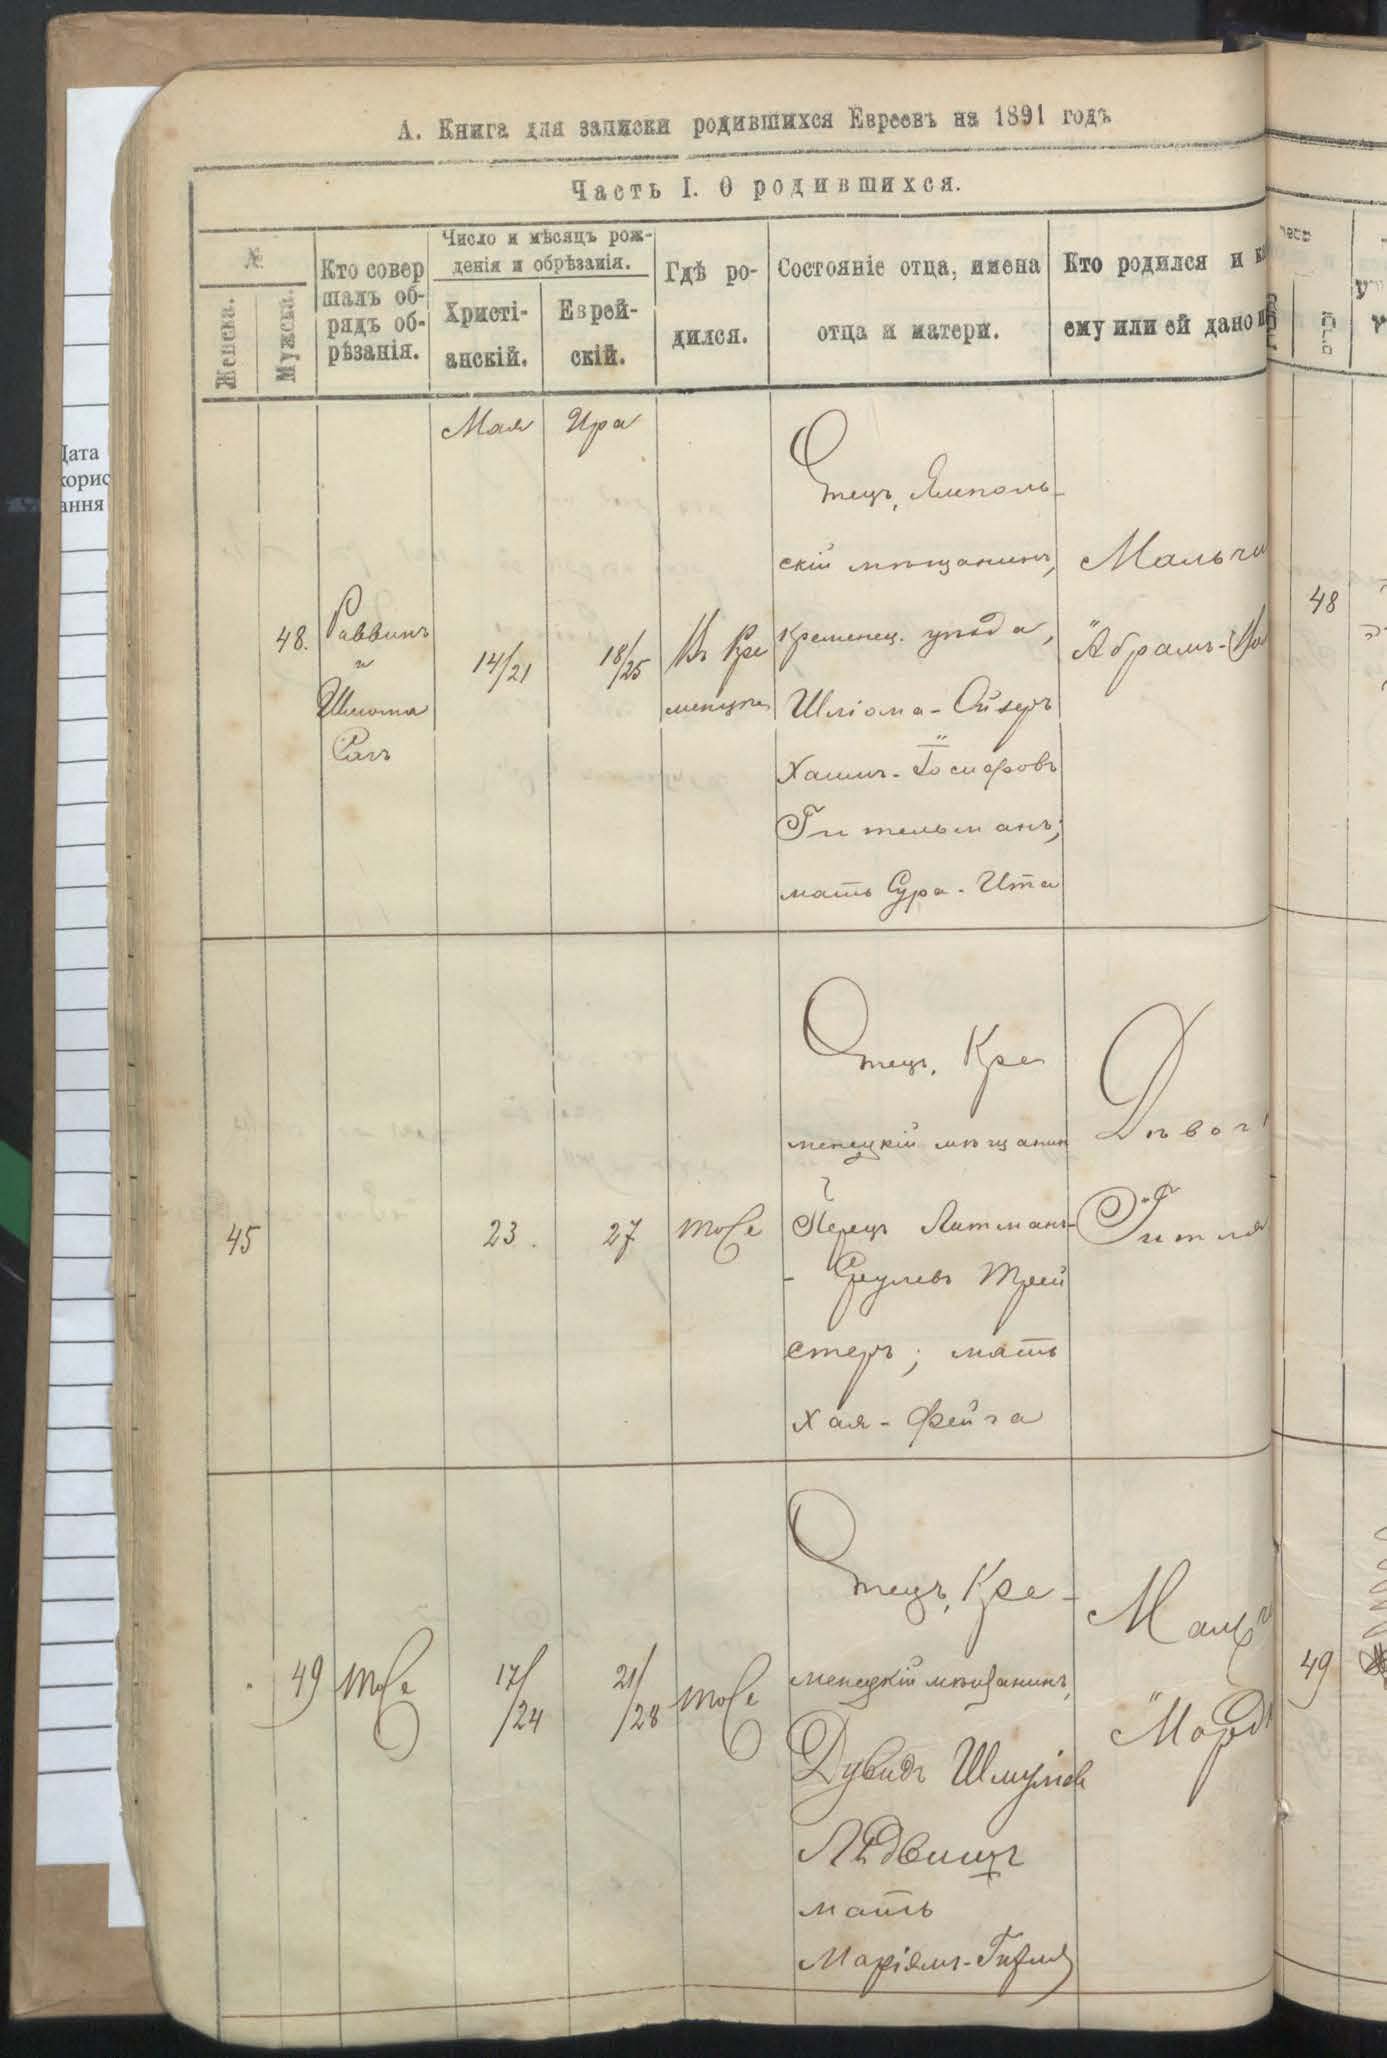 А. Книга для записки родившихся Евреевъ на 1891 годъ
Часть I. О родившихся.
№
Женска.
Мужска.
Кто совер
шалъ об-
рядъ об-
рѣзанія.
Число и мѣсяцъ рож-
денія и обрѣзанія.
Христі-
анскій.
Еврей-
скій.
Гдѣ ро-
дился.
Состояніе отца, имена
отца и матери.
Кто родился и
ему или ей дано
Дата
корис
ання
Мая
Ира
48.
Раввинъ
и
Шлома
14/21
18/25
Въ Кре
менцѣ
Отецъ, Ямполь-
скій мѣщанинъ,
Кременец. уѣзда,
Шліома-Ойзеръ
Хаимъ-Іосифовъ
Гительманъ;
мать Сура-Ита
Мальчи
Абрамъ-
48
45
23.
27
тоже
Отецъ, Кре
менецкій мѣщанин
Перецъ Литманъ-
- Сруле­въ Трей
стеръ; мать
Хая-Фейга
Дѣвоч
Гитля
49
тоже
17/24
21/28
тоже
Отецъ, Кре-
менецкій мѣщанинъ,
Дувидъ Шмулев
мать
Маріямъ-
Мальч
Морд
49